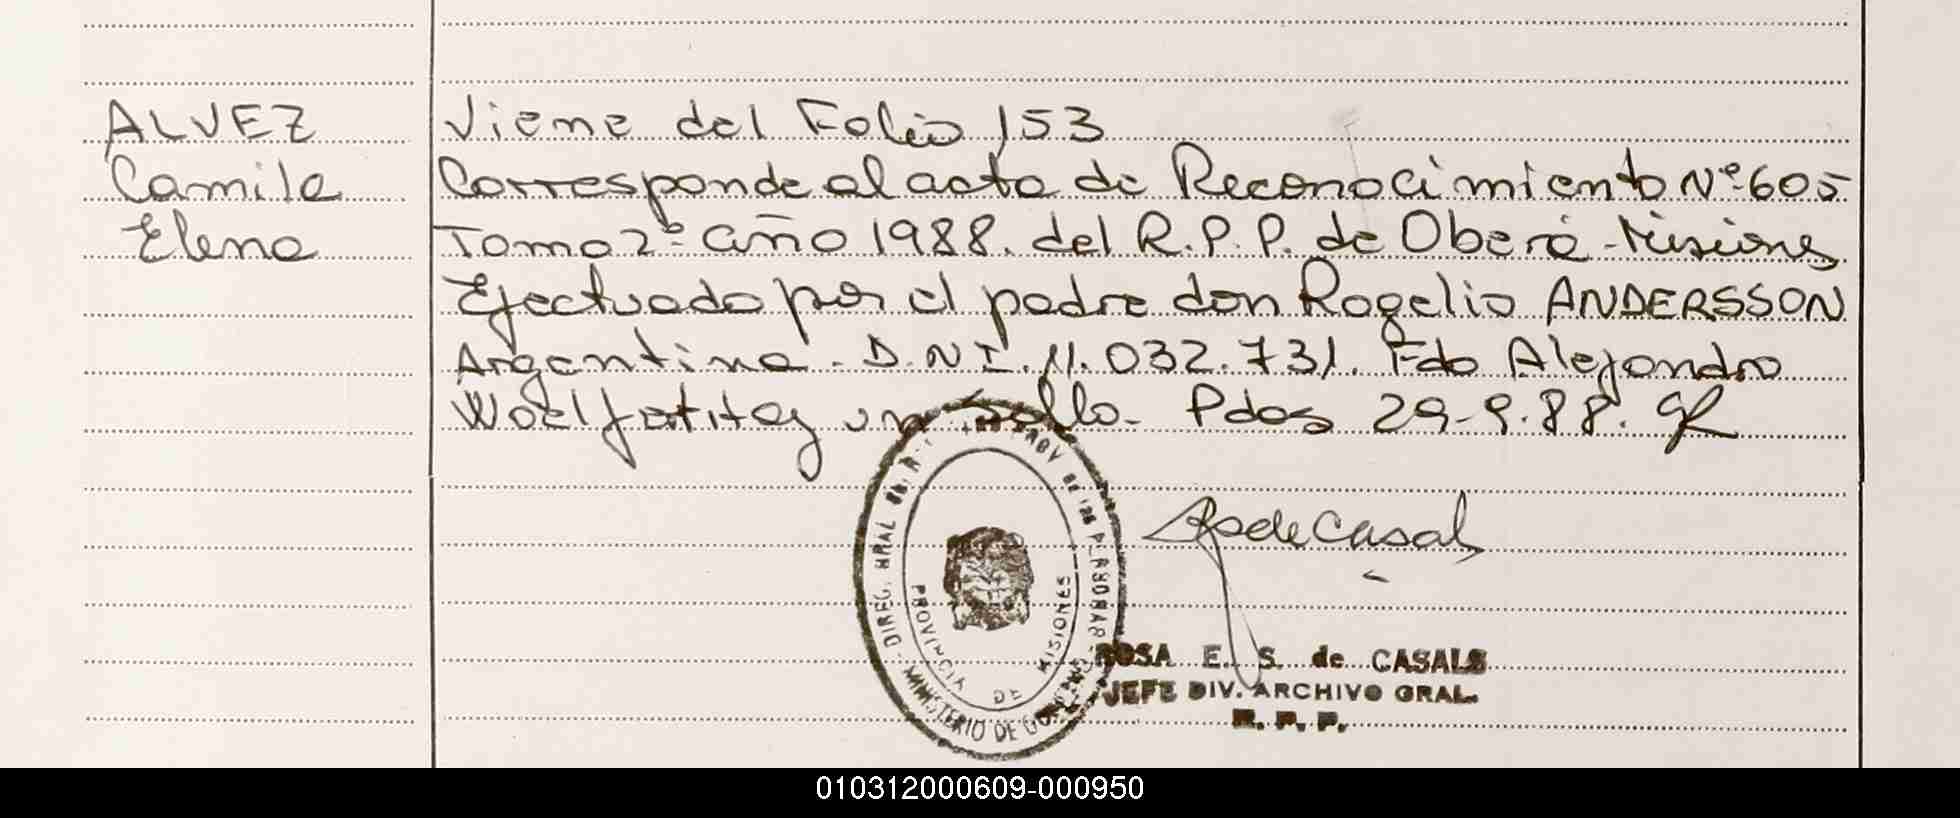 ALVEZ
Camila
Elena
Viene del Folio 153
Corresponde al acta de Reconocimiento Nº 605
Tomo 2º año 1988. del R.P.P. de Oberá - Misiones
Efectuado por el padre don Rogelio ANDERSSON
Argentino - D.N.I. 11.032.731. Fdo Alejandro
un sello - Pdas 29-9-88.
PROVINCIA DE MISIONES
MINISTERIO DE GOBIERNO
ROSA E. S. de CASALS
JEFE DIV. ARCHIVO GRAL.
R. P. P.
010312000609-000950